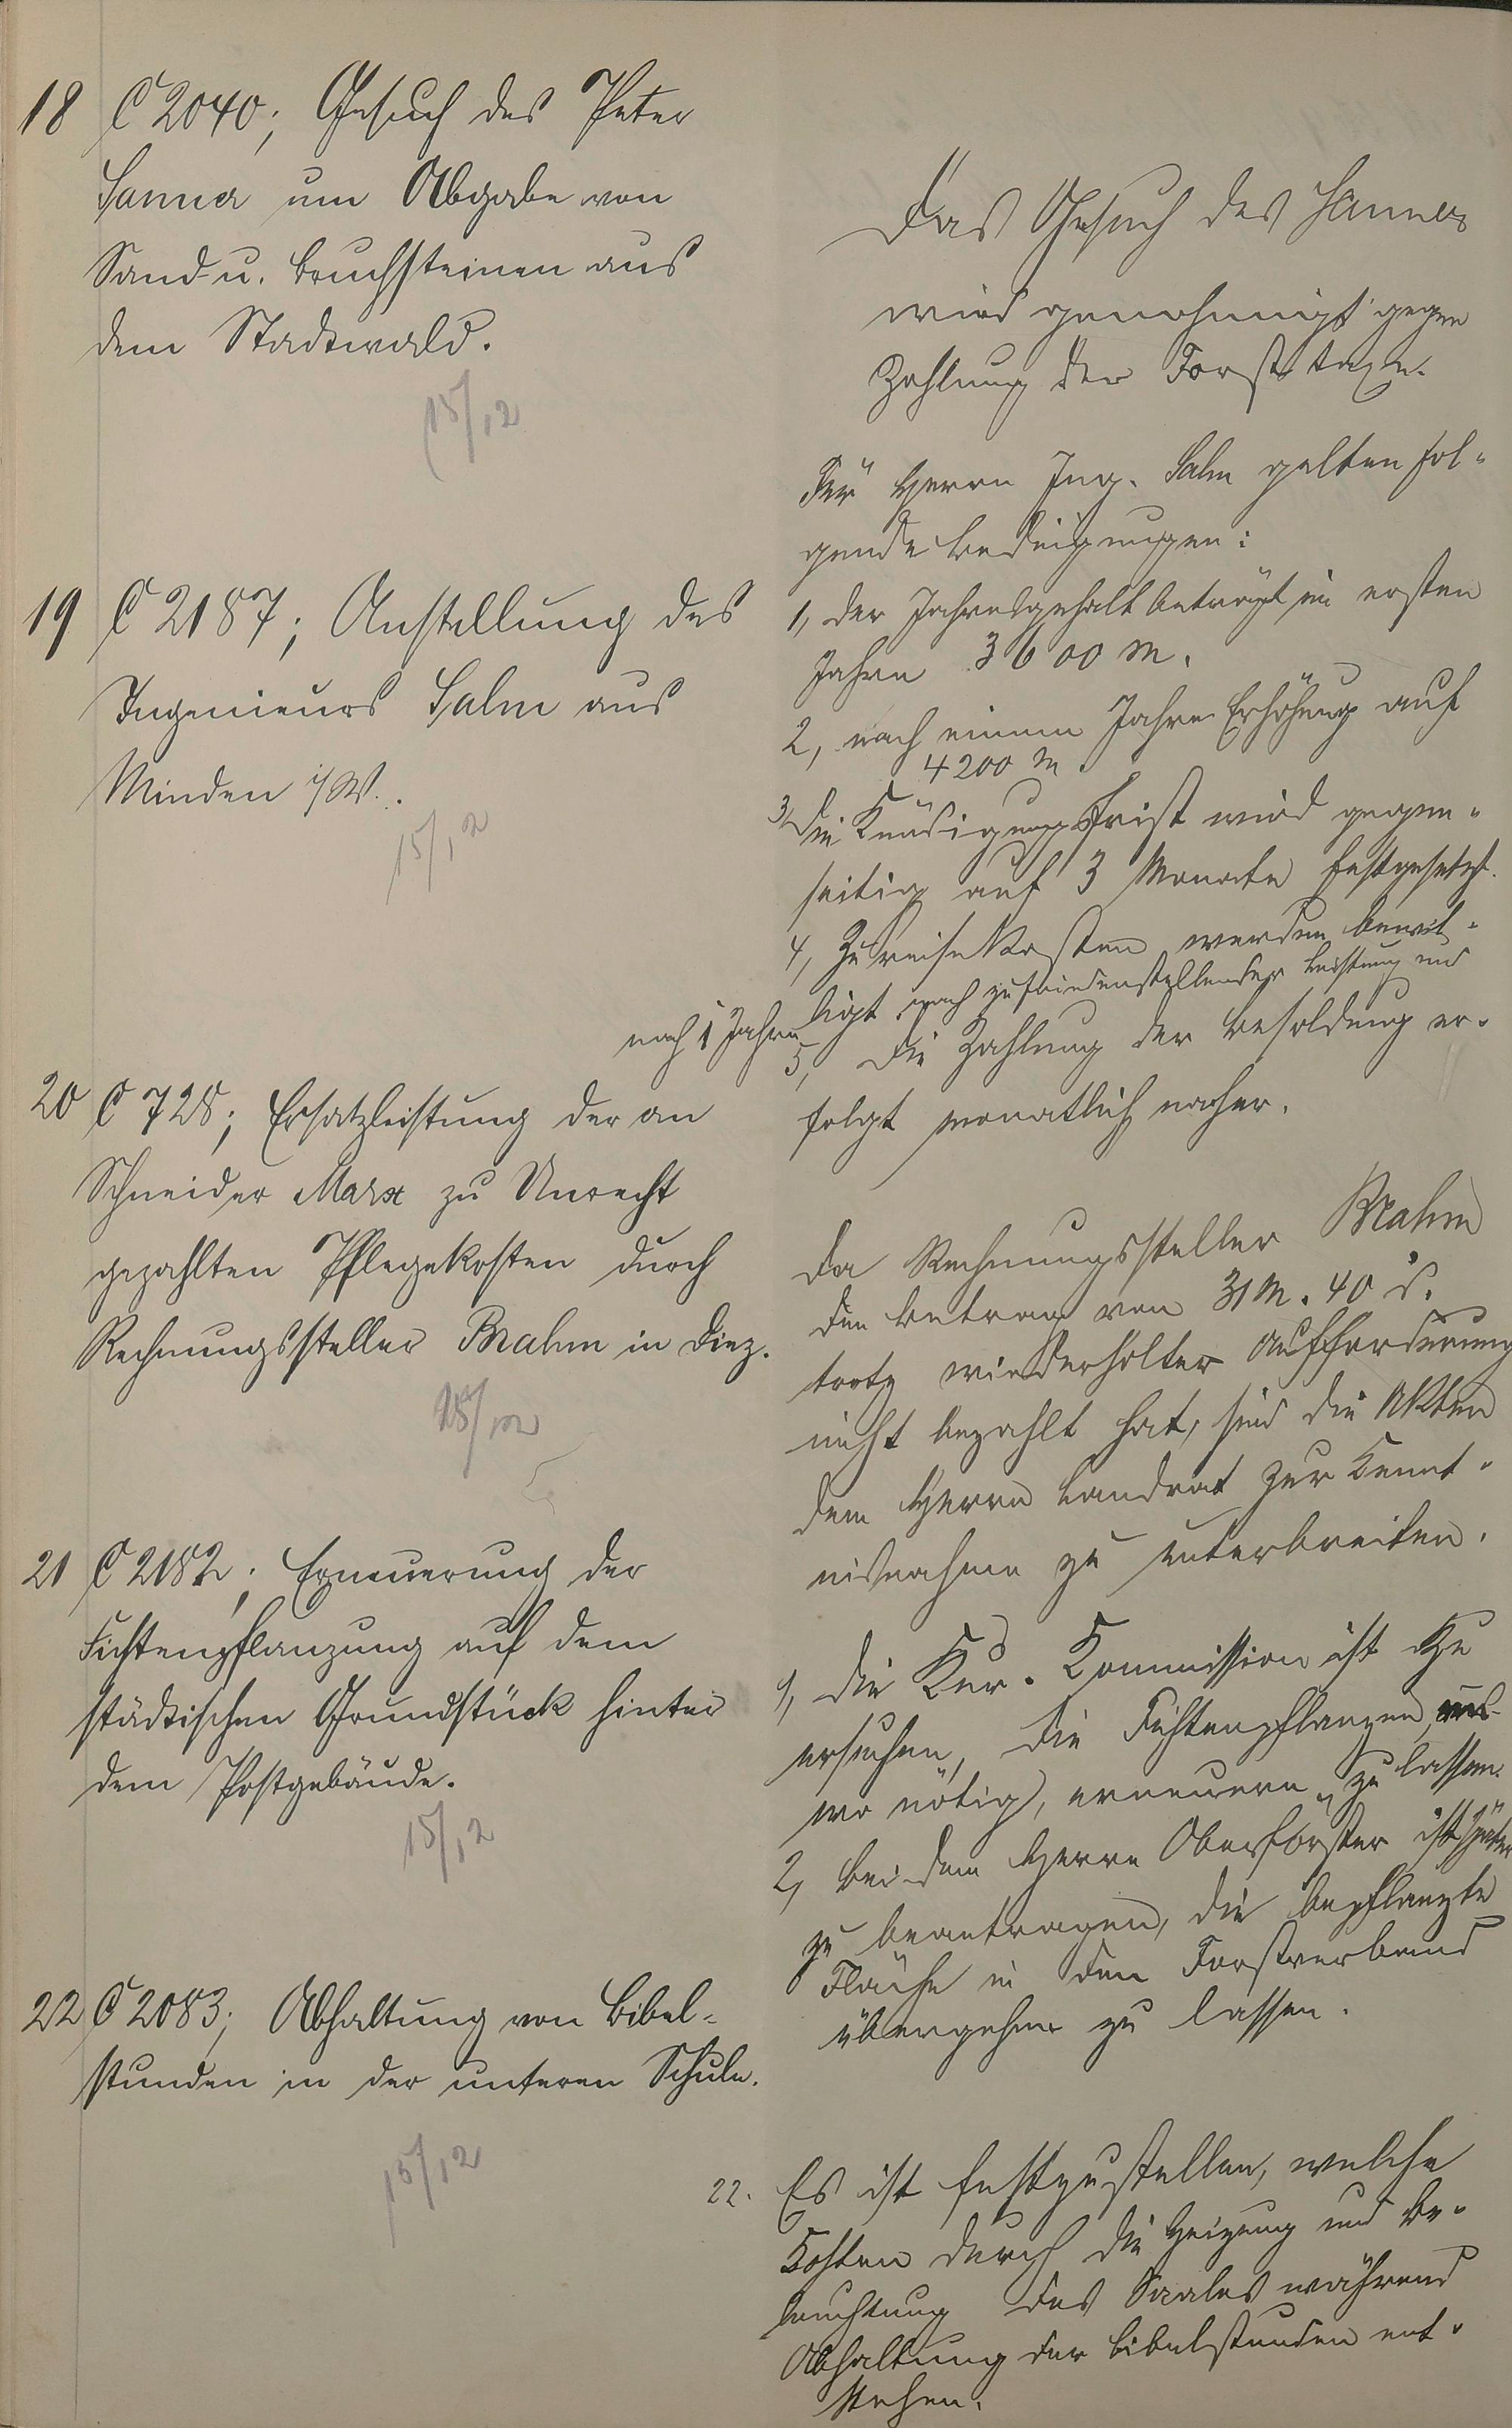 18 C 2040; Gesuch des Peter
Sanner um Abgabe von
Sand- u. Bruchsteinen aus
dem Stadtwald.
15/12
Das Gesuch des Sanner
wird genehmigt gegen
Zahlung der Forsttaxe.
19 C 2187; Anstellung des
Ingenieurs Salm aus
Minden i/W.
15/12
Für Herrn Ing. Salm gelten fol-
gende Bedingungen:
1, der Jahresgehalt beträgt im ersten
Jahre 3600 M.
2, nach einem Jahre Erhöhung auf
4200 M
3, Die Kündigungsfrist wird gegen-
seitig auf 3 Monate festgesetzt.
4, Zureisekosten werden bewil-
ligt nach zufriedenstellender Leistung und
nach 1 Jahre
5, die Zahlung der Besoldung er-
folgt monatlich nachher.
20 C 728; Ersatzleistung der an
Schneider Marx zu Unrecht
gezahlten Pflegekosten durch
Rechnungssteller Brahm in Diez.
15/12
Da Rechnungssteller Brahm
den Betrag von 31 M. 40 d.
trotz wiederholter Aufforderung
nicht bezahlt hat, sind die Akten
dem Herrn Landrat zur Kennt-
nisnahme zu unterbreiten.
21 C 2182; Erneuerung der
Fichtenpflanzung auf dem
städtischen Grundstück hinter
dem Postgebäude.
15/12
1, die Kur-Kommission ist zu
ersuchen, die Fichtenpflanzen,
wo nötig, erneuern zu lassen.
2, bei dem Herrn Oberförster ist später
zu beantragen, die bepflanzte
Fläche in den Forstverband
übergehen zu lassen.
22 C 2083; Abhaltung von Bibel-
stunden in der unteren Schule.
15/12
22. Es ist festzustellen, welche
Kosten durch die Heizung und Be-
leuchtung des Saales während
Abhaltung der Bibelstunden ent-
stehen.